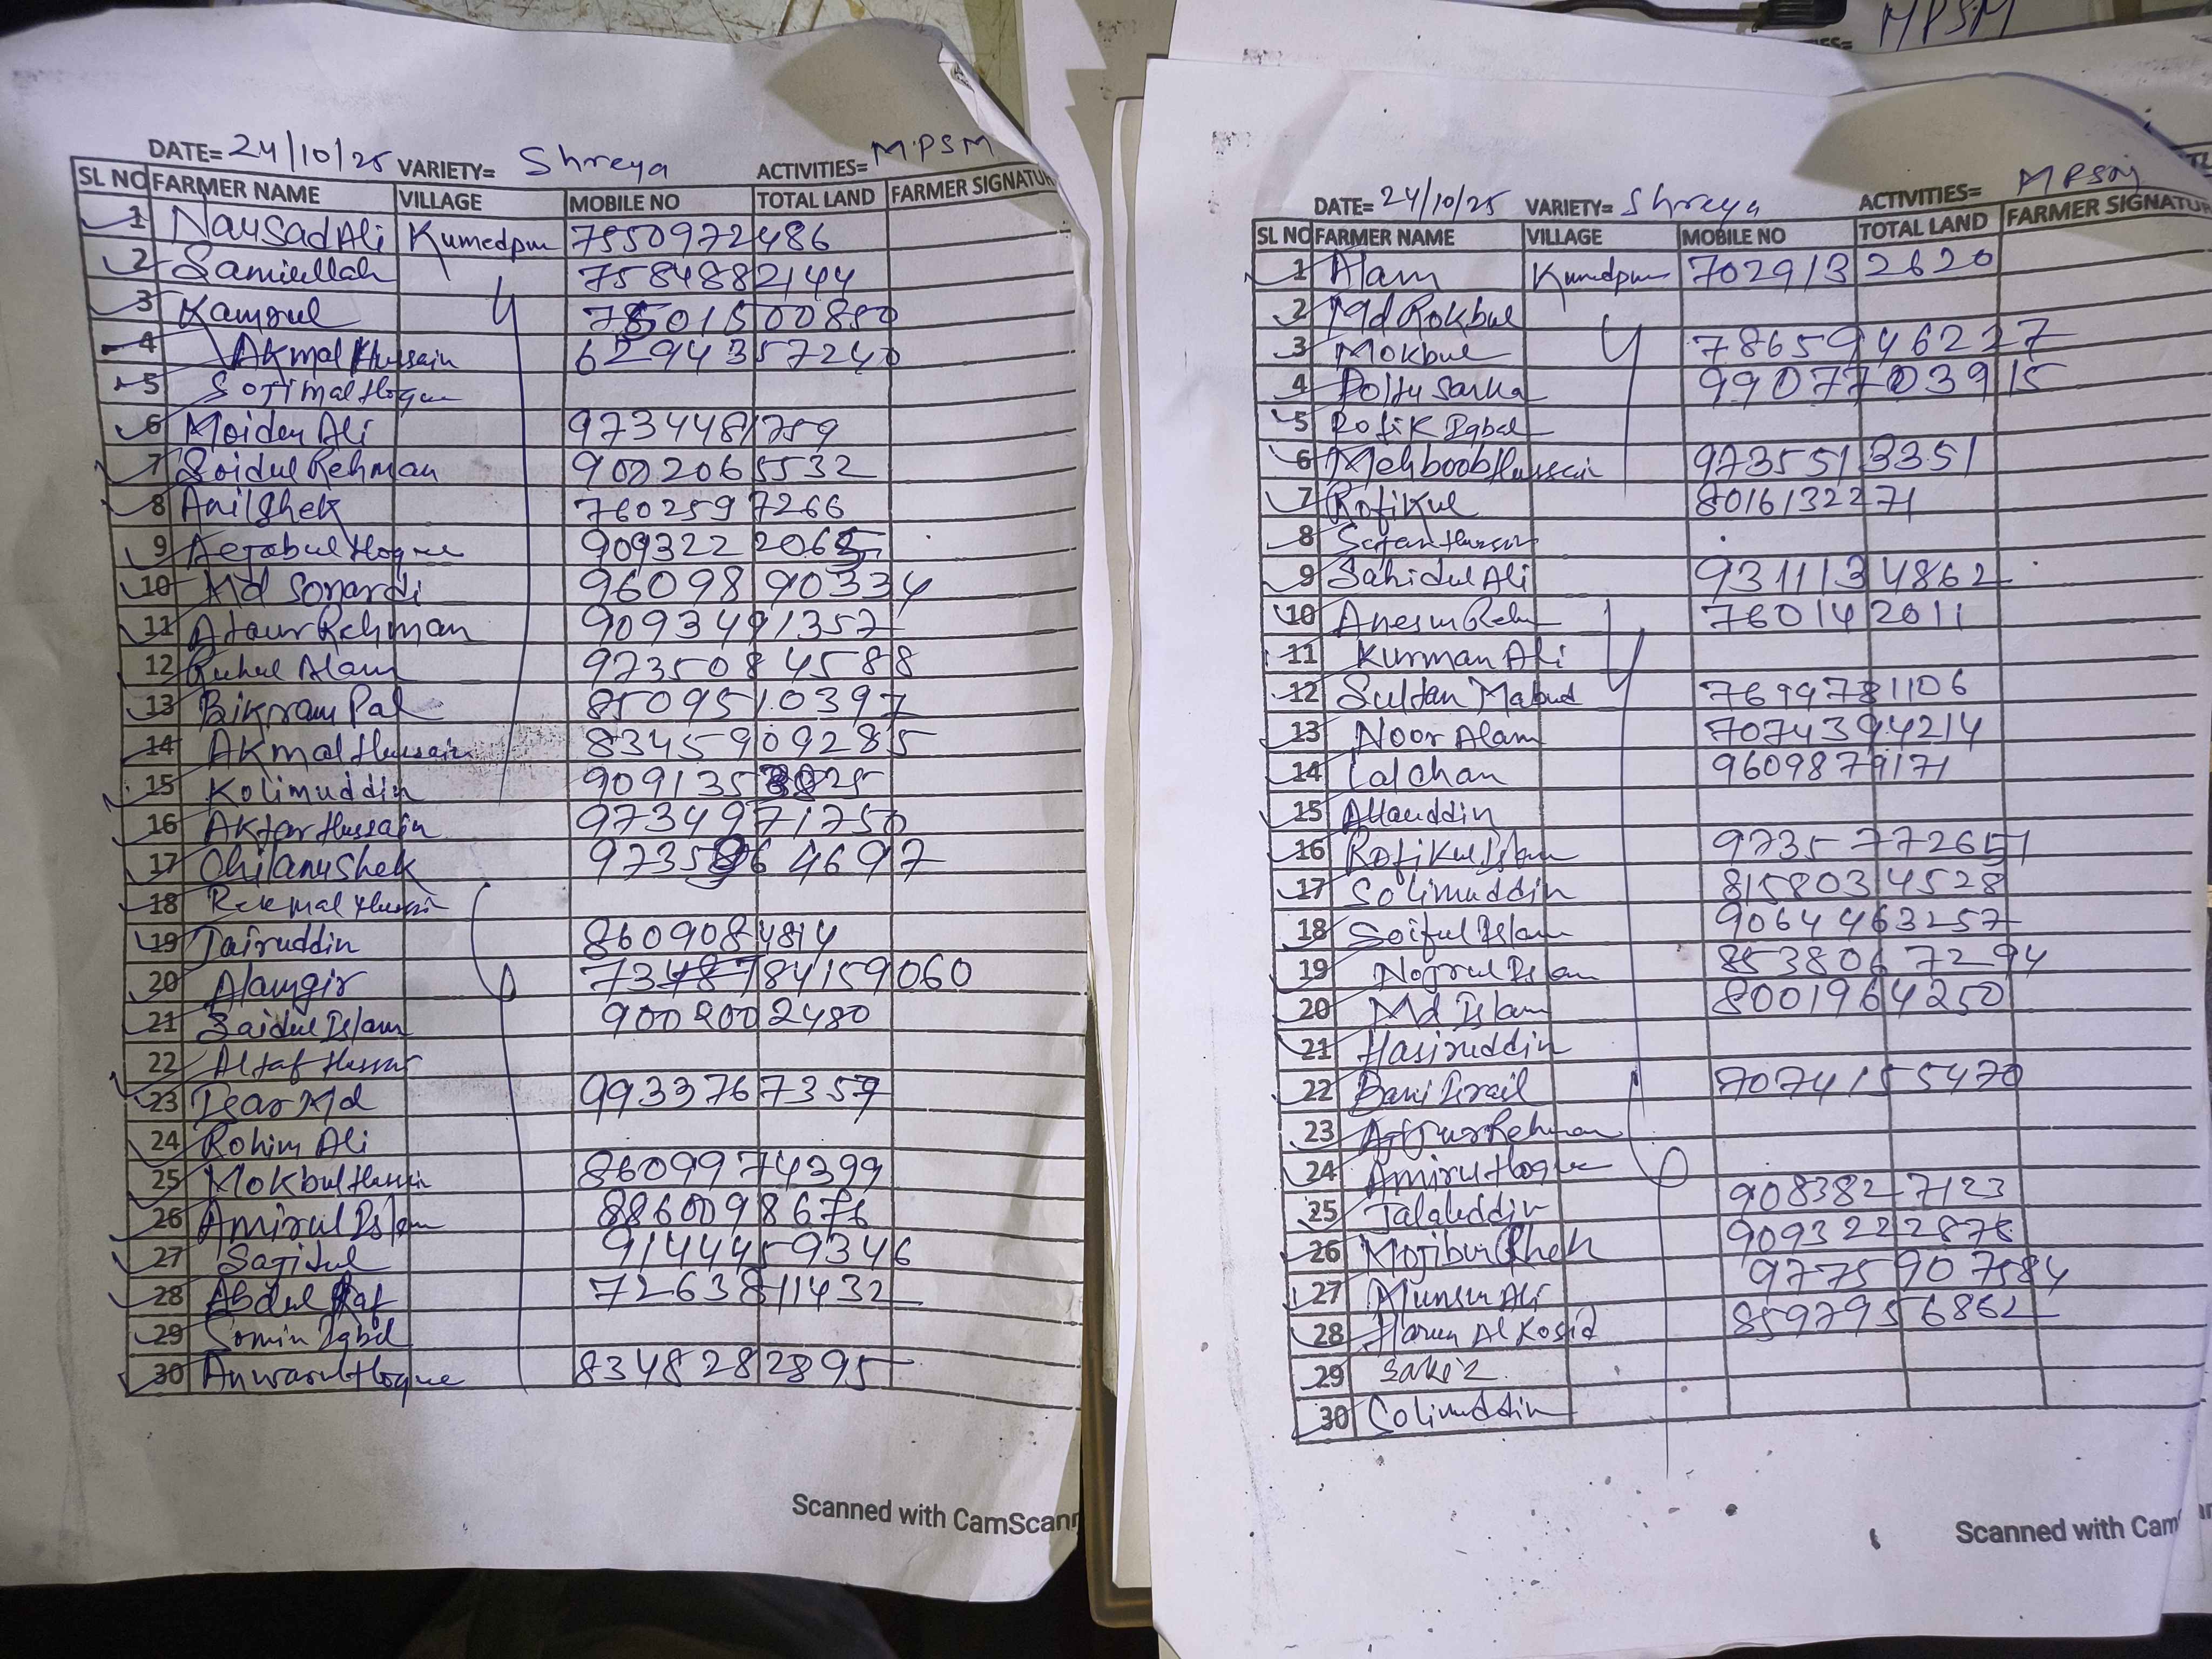 MPSM
DATE= 24/10/25 VARIETY= Shreya ACTIVITIES= MPSM
SL NO FARMER NAME VILLAGE MOBILE NO TOTAL LAND FARMER SIGNATUR
1 Nausad Ali Kumedpur 7550972486
2 Samiullah 〃 7584882144
3 Kamrul
4 Akmal Hussain 6294357240
5 Sorimal Hoque
6 Moiden Ali 9734481759
7 Soidul Rehman 9002065532
8 Anil Shek 7602597266
9 Aejabul Hoque 909322206
10 Md Sonardi 9609890334
11 Ataur Rehman 9093491357
12 Ruhul Alam 9735084588
13 Bikram Pal 8509510397
14 Akmal Hussain 8345909285
15 Kolimuddin
16 Aktar Hussain 9734971750
17 Chilanu Shek
18 Rekmal Hussain
19 Tairuddin 8609084814
20 Alamgir 84159060
21 Saidul Islam 9002002480
22 Altaf Hussai
23 Isar Md 9933767357
24 Rohim Ali
25 Mokbul Hussain 8609974399
26 Amirul Islam 8860098676
27 Sajidul 9144459346
28 Abdul 7263811432
29 Somin Iqbal
30 Anwarul Hoque 8348282895
Scanned with CamScann
DATE= 24/10/25 VARIETY= Shreya ACTIVITIES= MPSM
SL NO FARMER NAME VILLAGE MOBILE NO TOTAL LAND FARMER SIGNATUR
1 Alam Kumedpur 7029132620
2 Md Rokbul 〃
3 Mokbul 7865946227
4 Poltu Sarka 9907703915
5 Rofik Iqbal
6 Mehboob Hussain 9735513351
7 Rofikul 8016132271
8
9 Sahidul Ali 9311134862
10 Anesur Rehm 760142011
11 Kurman Ali 〃
12 Sultan Mabud 7699781106
13 Noor Alam 7074394214
14 Lalchan 9609879171
15 Allauddin
16 Rofikul Islam 9735772651
17 Solimuddin 8158034528
18 Soiful Islam 9064463257
19 Nojrul Islam 8538067294
20 Md Islam 8001964250
21 Hasiruddin
22 Bani Israil 7074155470
23 Rehman
24 Amirul Hoque
25 Jalaluddin 9083827123
26 Mojibur Shek 9093222876
27 Munsur Ali 9775907584
28 Harun Al Rosid 8597956862
29
30 Colimuddin
Scanned with Cam